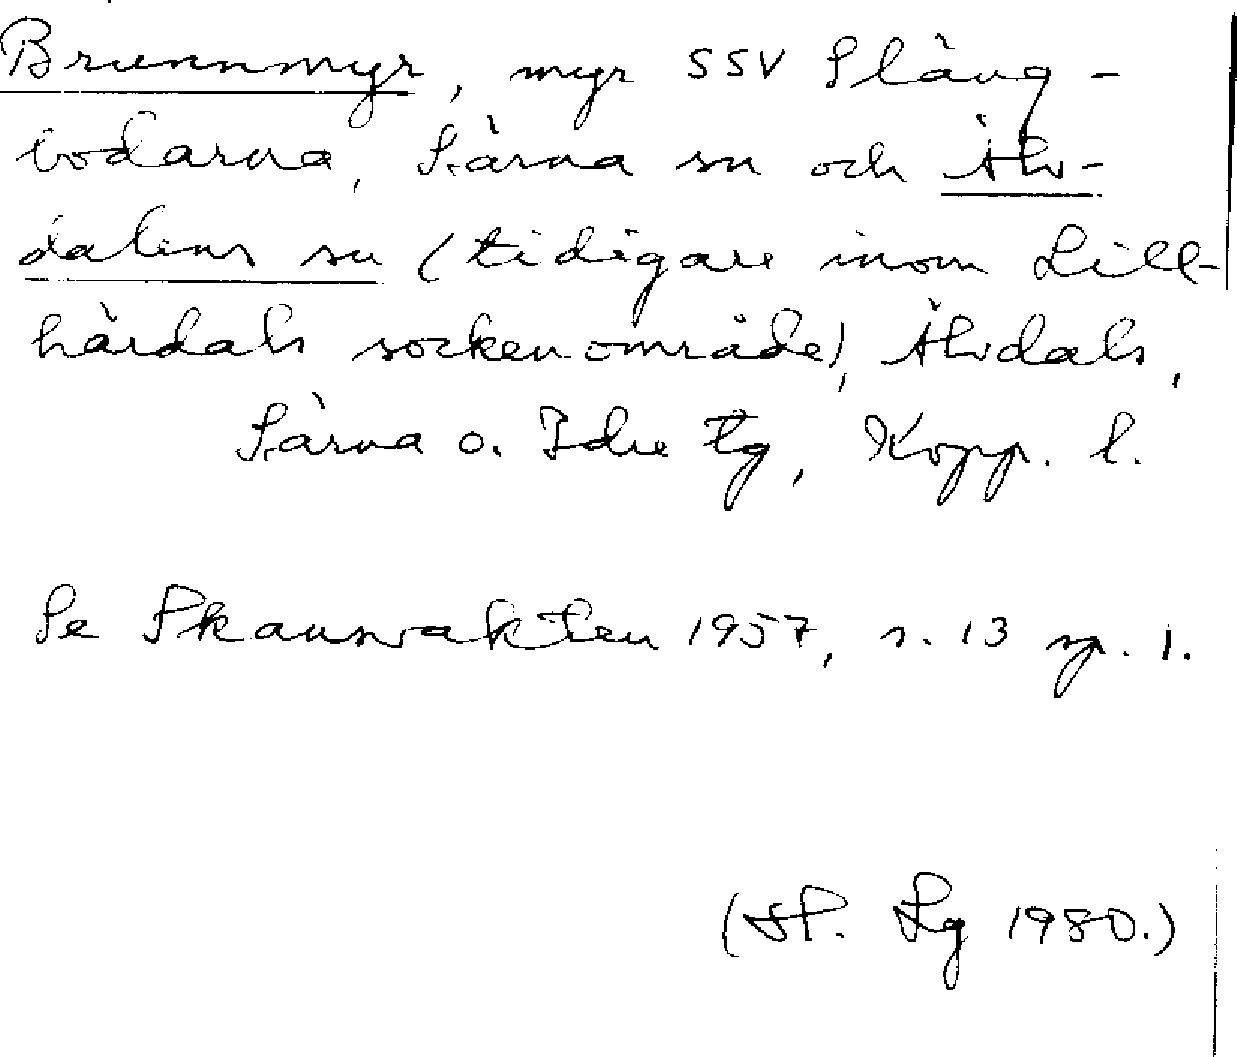 Brunnmyr, myr SSV Släng-
bodarna, Särna sn och Älv-
dalens sn (tidigare inom Lill-
härdals sockenområde), Älvdals,
Särna o. Idre tg, Kopp. l.
Se Skansvakten 1957, s. 13 sp. 1.
Lg 1980.)